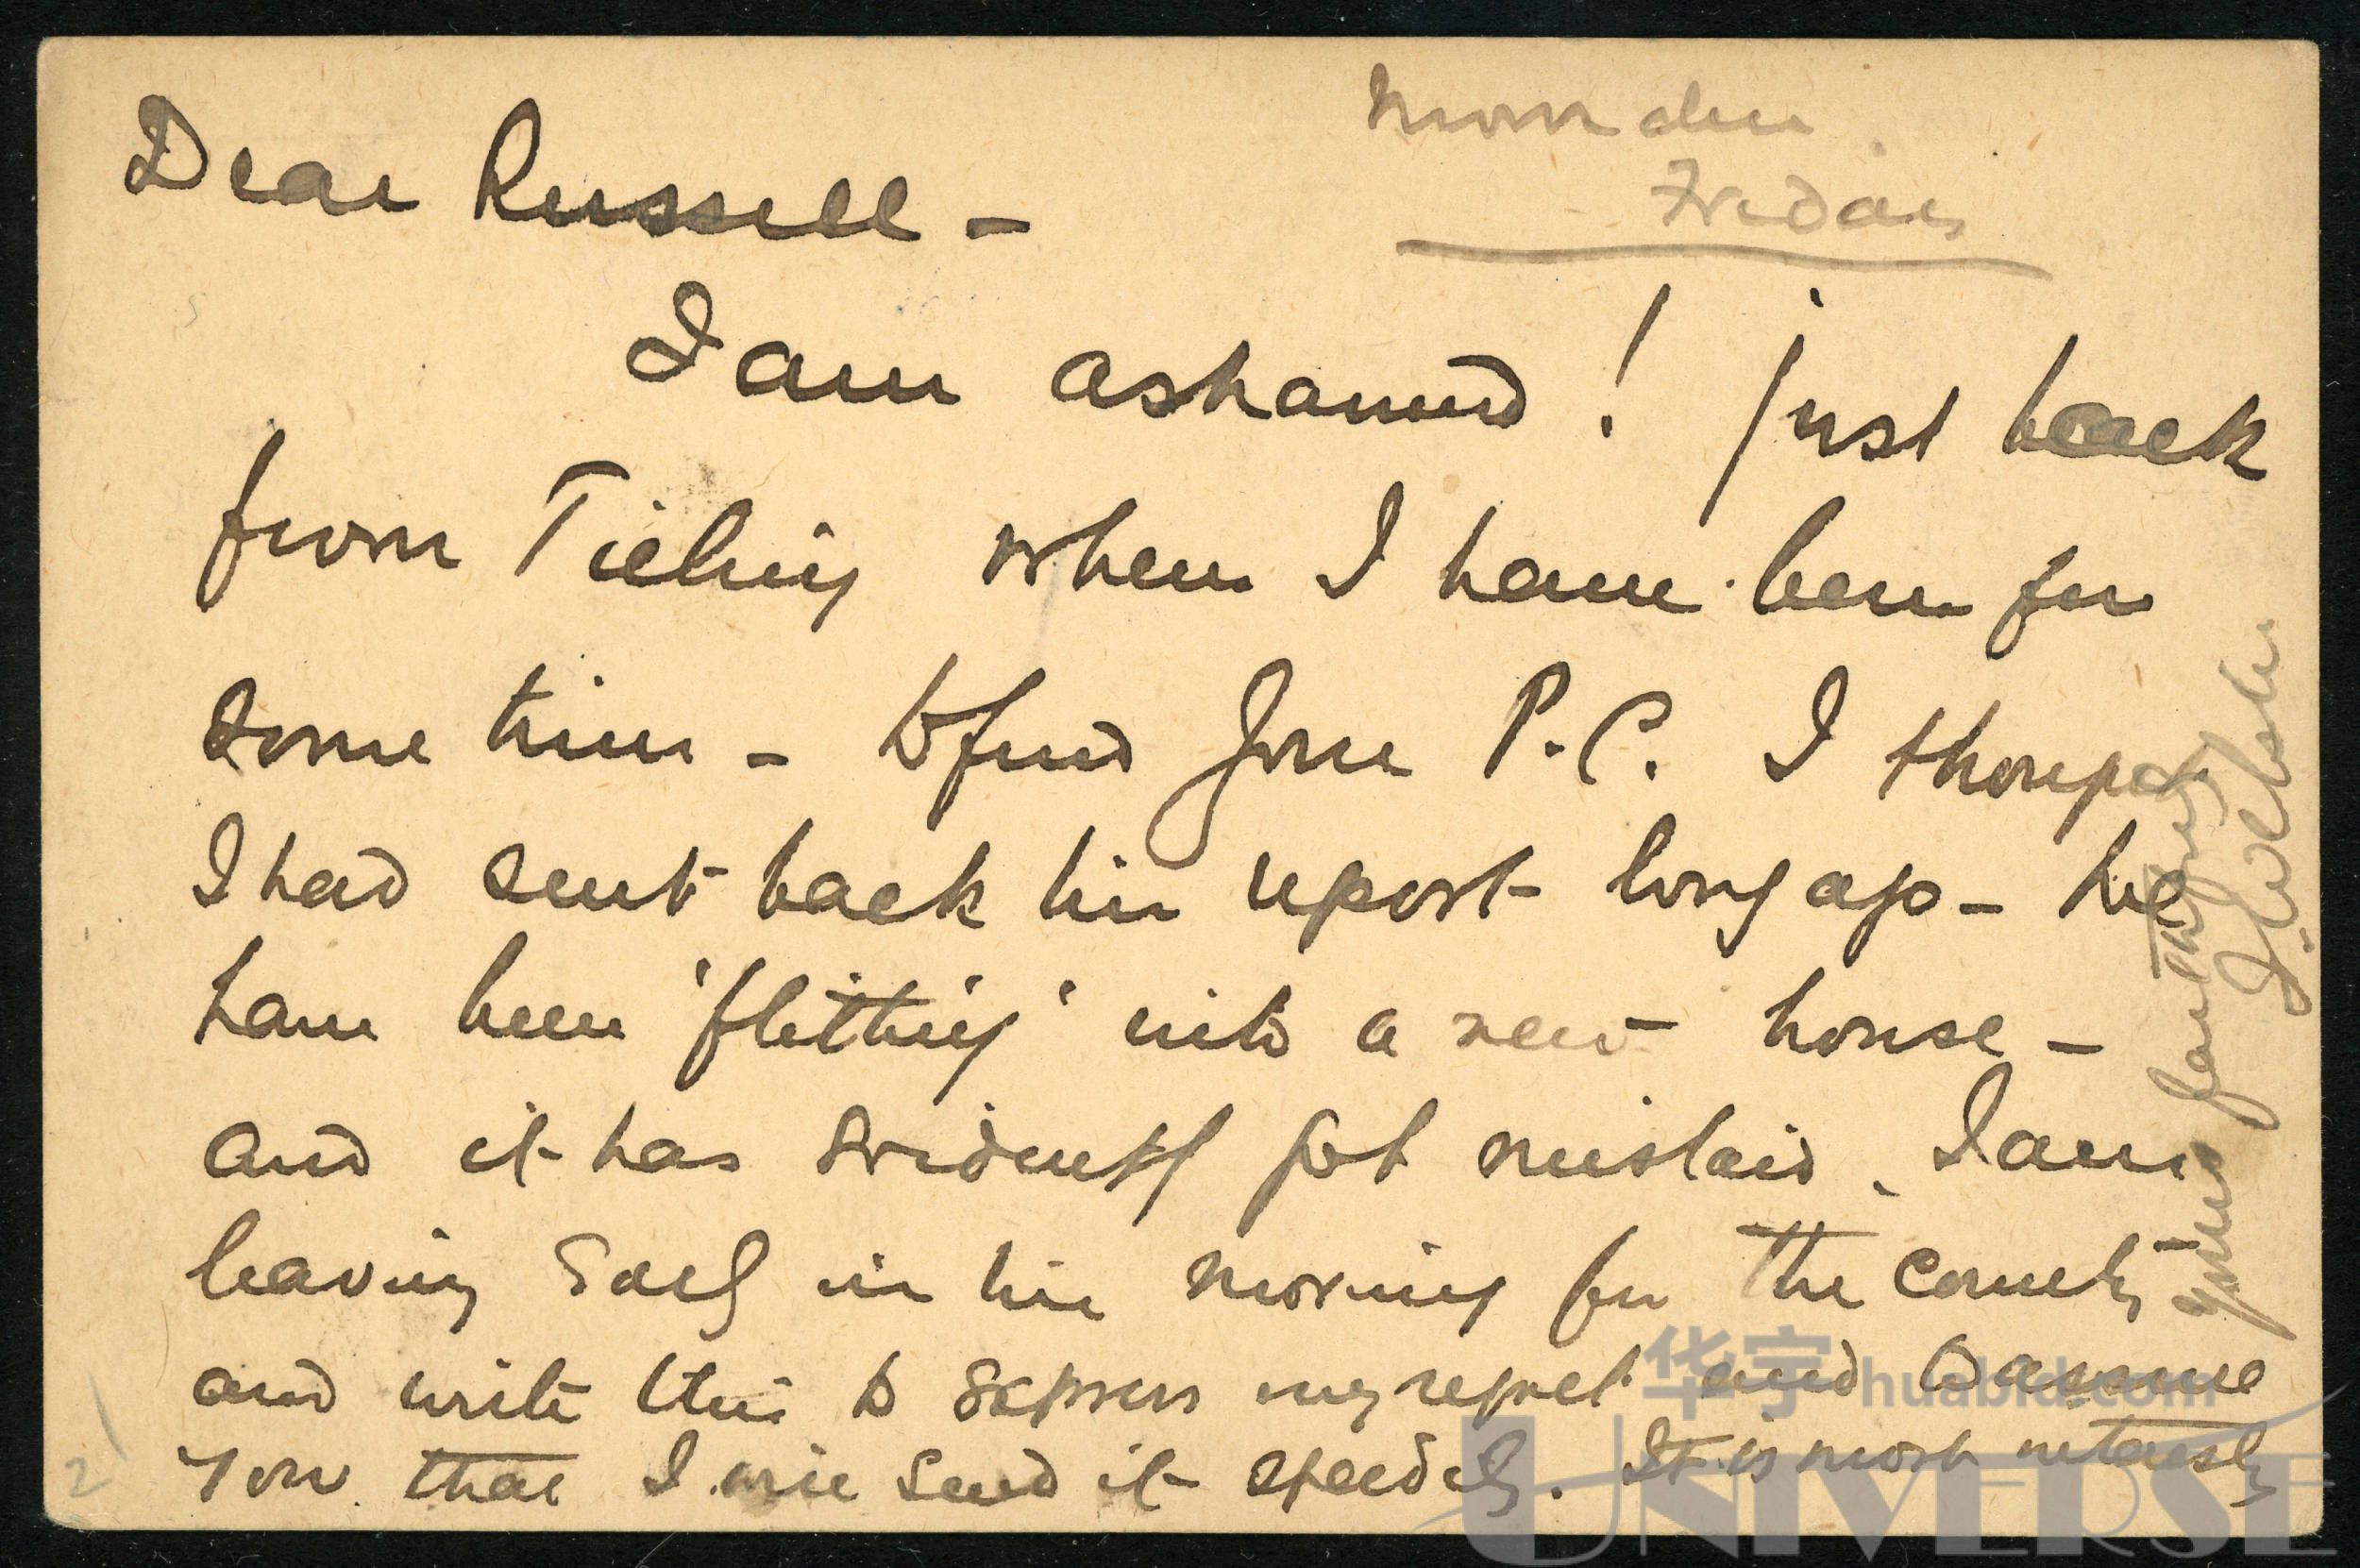 Moukden
Friday
Dear Russell -
I am ashamed! Just back
from Tieling where I have been for
some time - to find your P.C. I thought
I had sent back the report long ago - We
have been 'flitting' into a new house -
and it has evidently got mislaid. I am
leaving early in the morning for the country
and write this to express my regret and assure
you that I will send it speedily. It is most interesting
yours faithfully
华宇 huabid.com
UNIVERSE
2